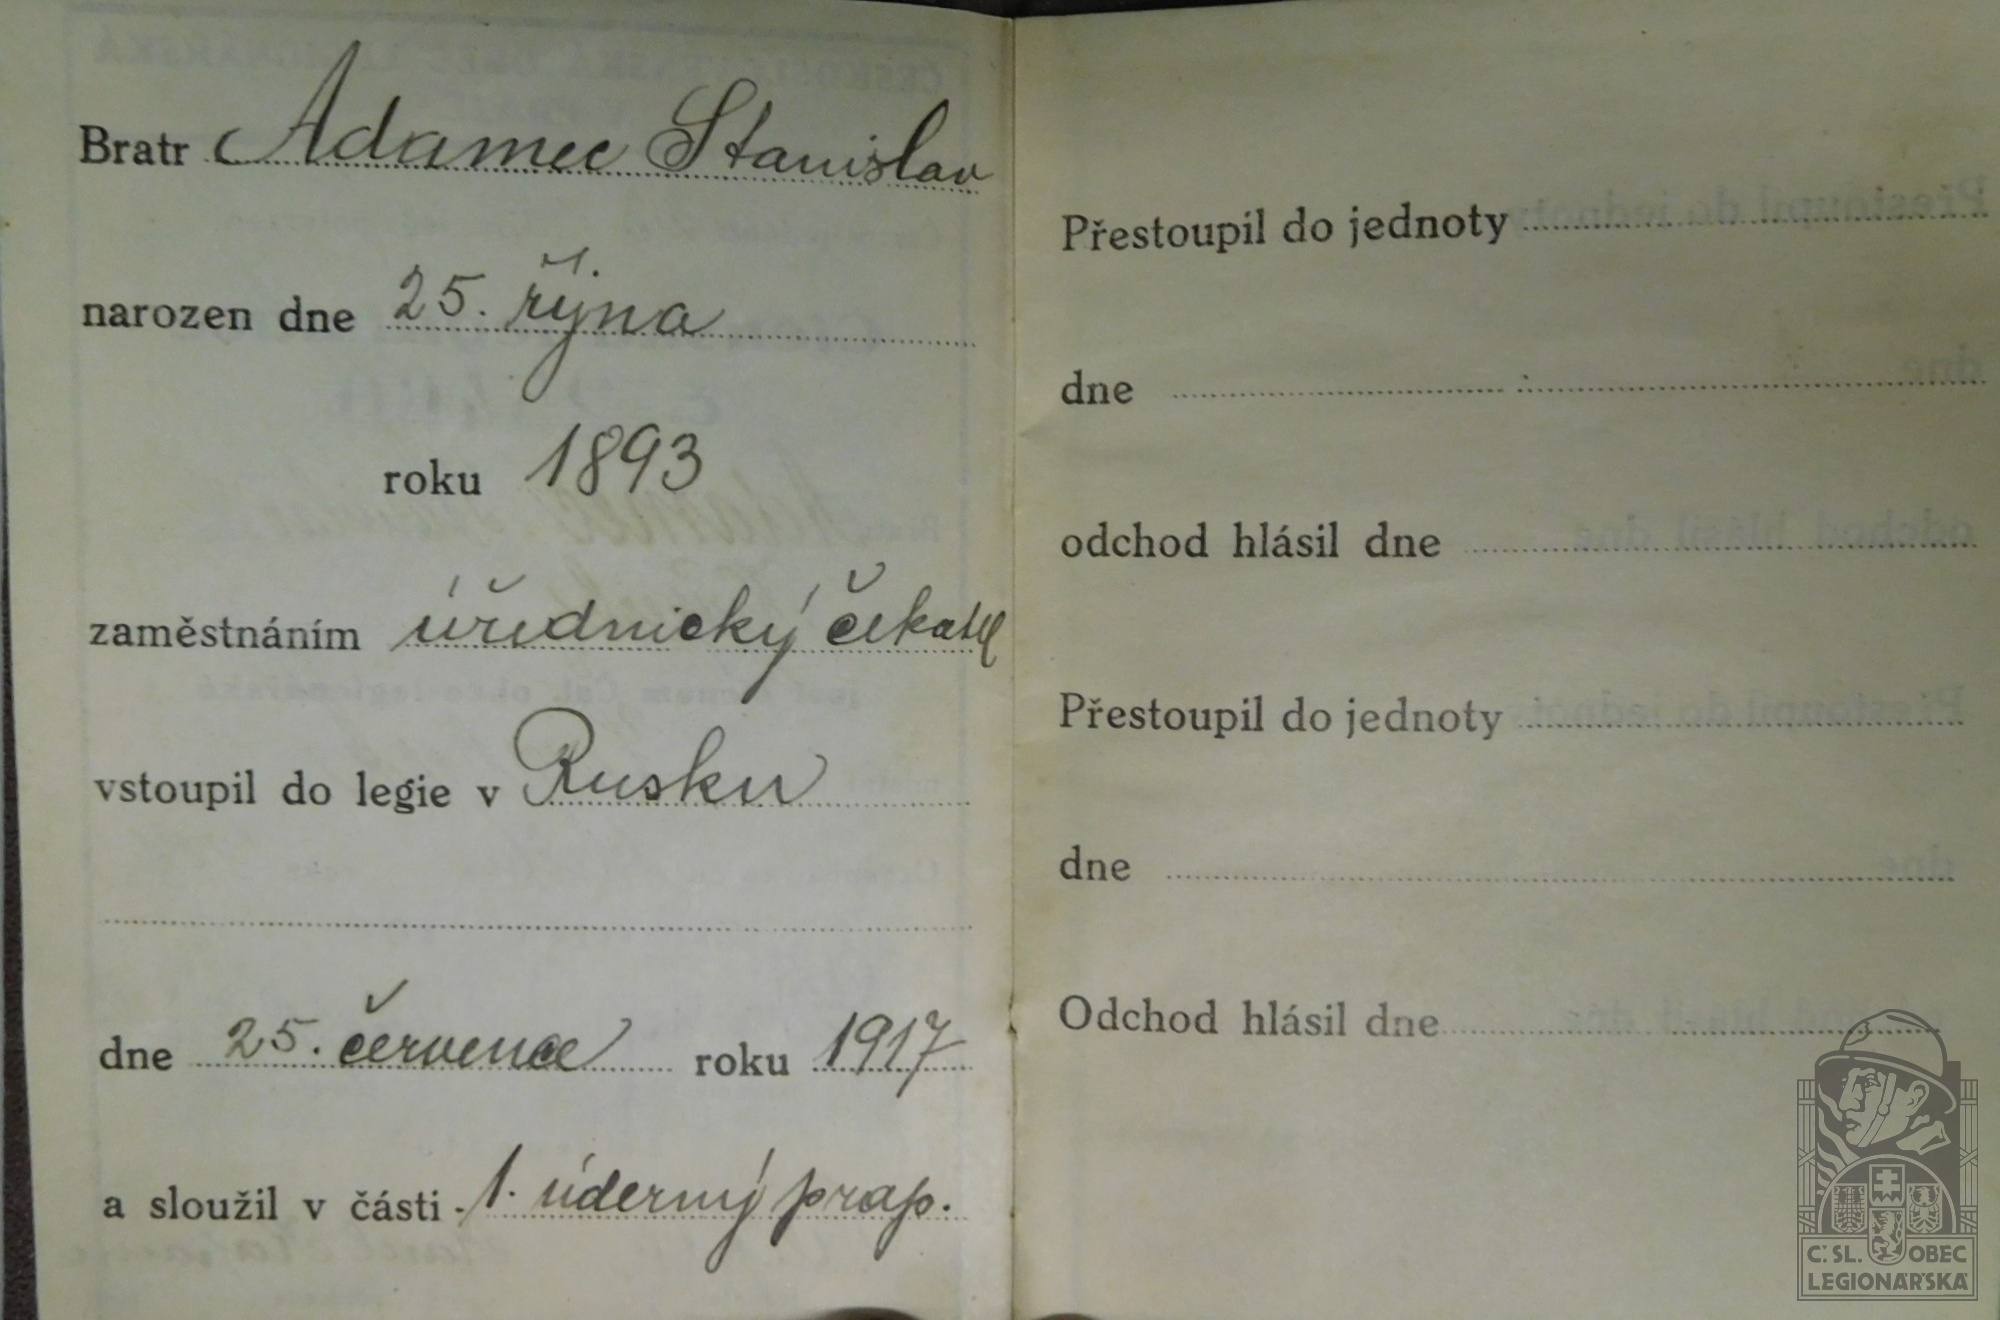 Bratr Adamec Stanislav
narozen dne 25. října
roku 1893
zaměstnáním úřednický čekatel
vstoupil do legie v Rusku
dne 25. července roku 1917
a sloužil v části 1. úderný prap.
Přestoupil do jednoty
dne
odchod hlásil dne
Přestoupil do jednoty
dne
Odchod hlásil dne
Č. SL. OBEC
LEGIONÁŘSKÁ